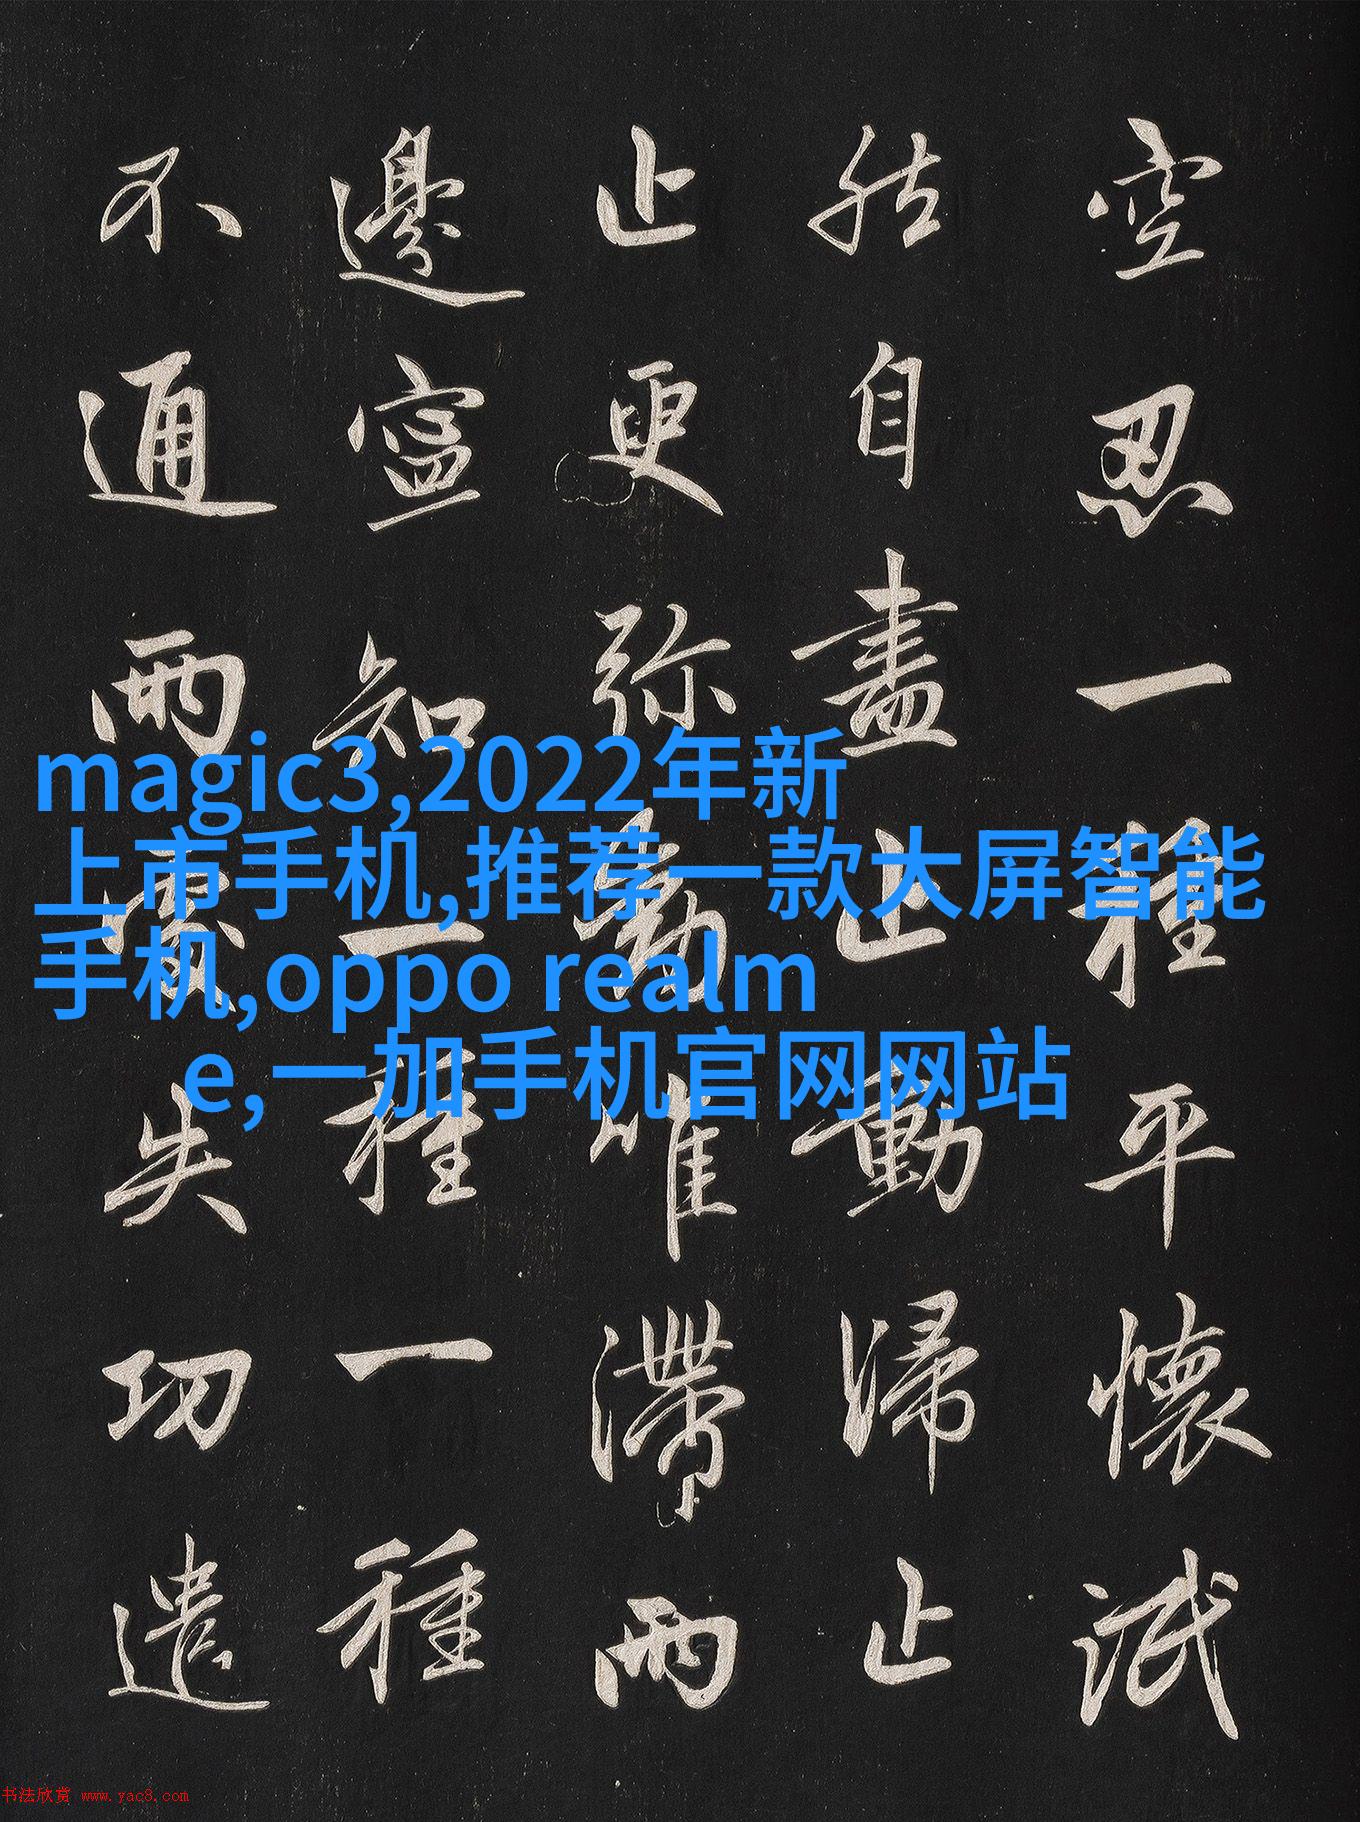 空忍一種平懷泯
然自盡止動歸止
止更弥動唯滯兩
邊寧知一種一種
不通兩處失功遣
magic3,2022年新
上市手机,推荐一款大屏智能
手机,oppo realm
e,一加手机官网网站
书法欣赏 www.yac8.com